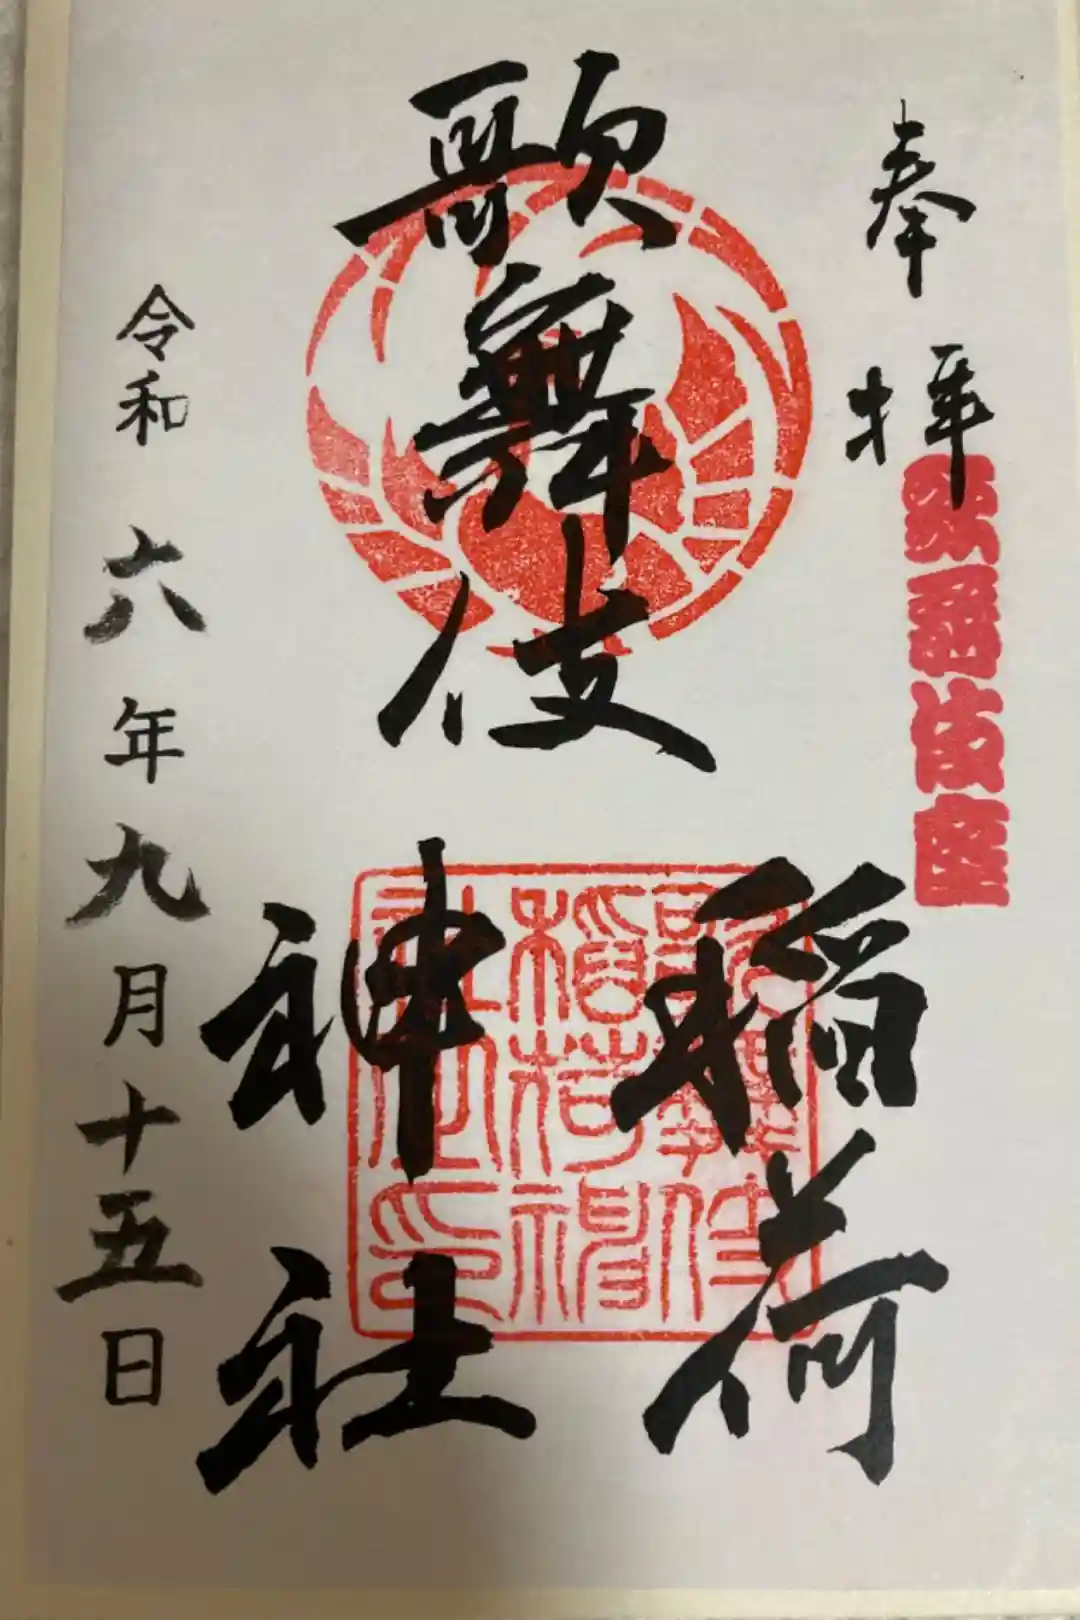 奉拝
歌舞伎座
歌舞伎
稲荷
神社
歌舞伎
稲荷神
社之印
令和六年九月十五日